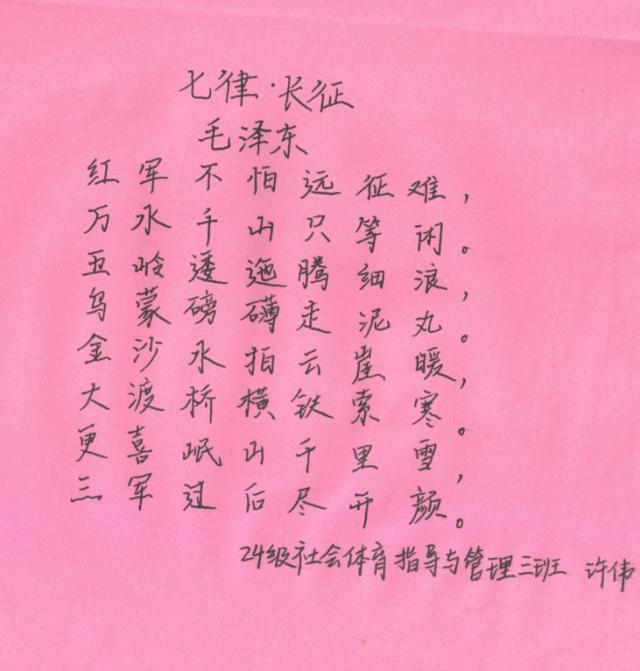 七律·长征
毛泽东
红军不怕远征难，
万水千山只等闲。
五岭逶迤腾细浪，
乌蒙磅礴走泥丸。
金沙水拍云崖暖，
大渡桥横铁索寒。
更喜岷山千里雪，
三军过后尽开颜。
24级社会体育指导与管理三班 许伟